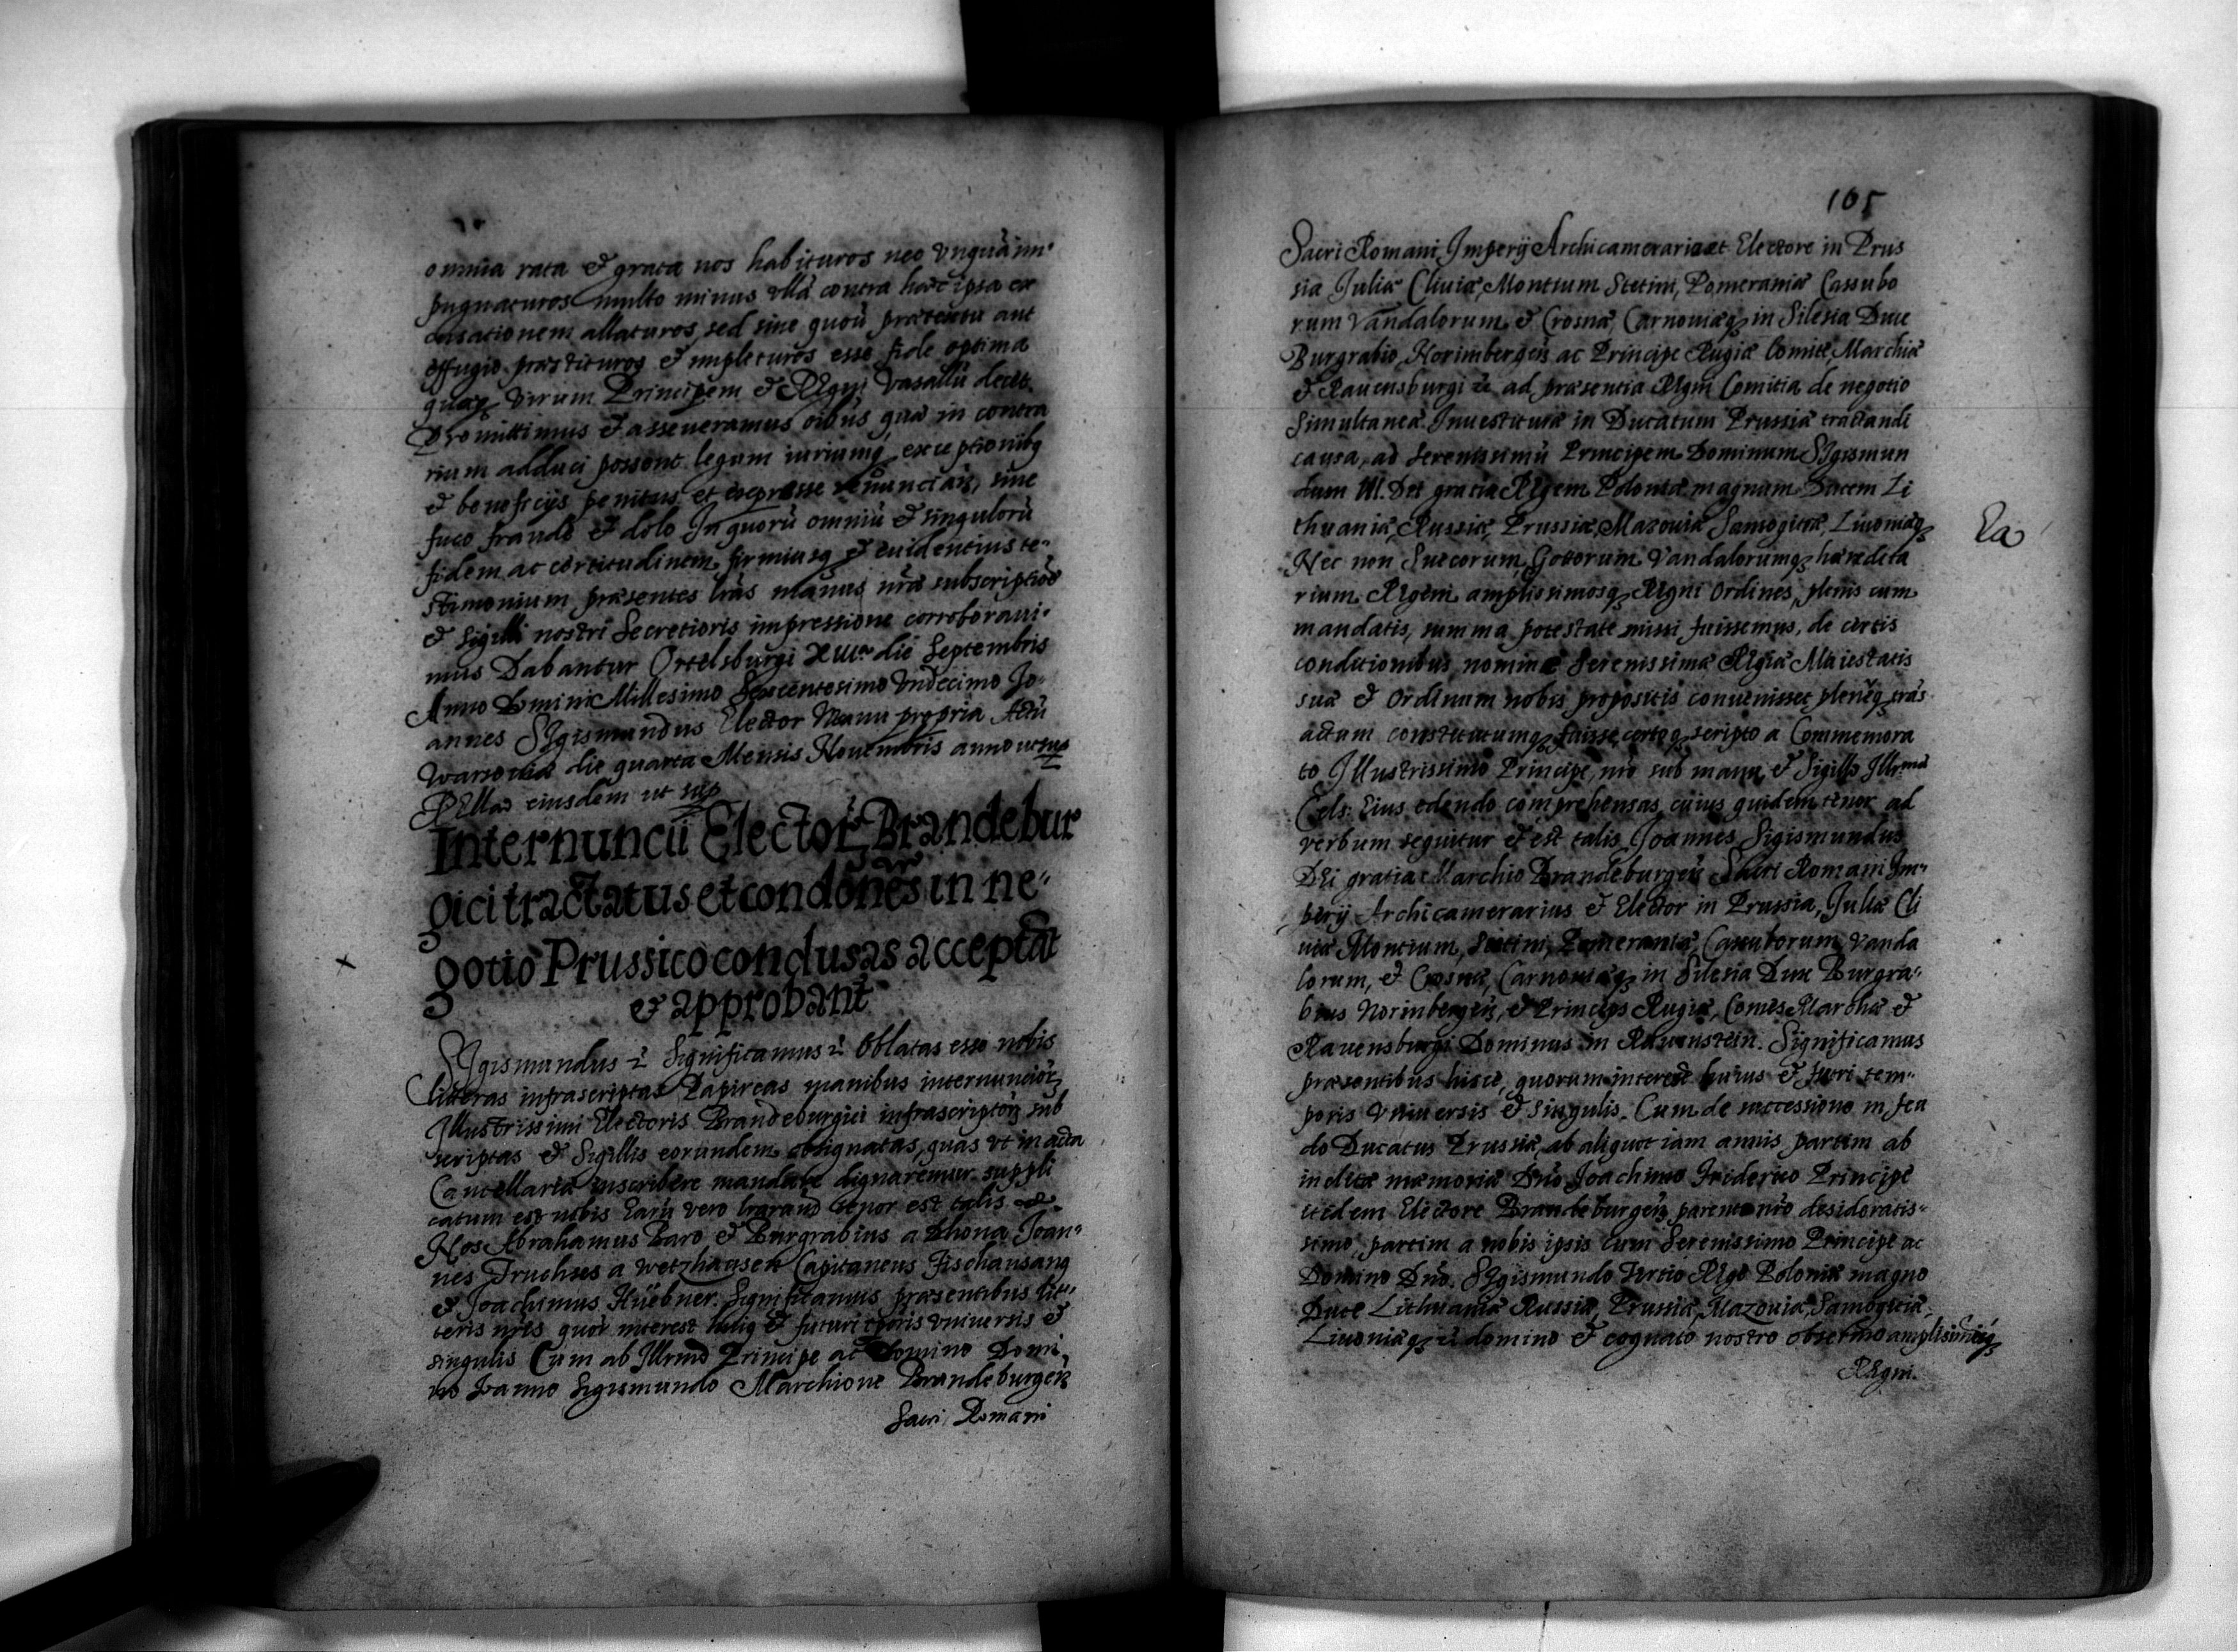 omnia rata et grata nos habituros nec vnquā im"
pugnaturos multo minus vllā contra haec ipsa ex
cusationem allaturos, sed sine quoū praetextu aut
effugio praestituros et impleturos esse fide optima
quaeq virum Principem et Regni Vasallū decet
Promittimus et asseueramus oibus quae in contra
rium adduci possent legum iuriumq exceptionibq
et beneficijs penitus et expresse renunciān, sine
fuco fraude et dolo In quorū omniū et singulorū
fidem ac certitudinem firmiusq et euidentius te"
stimonium praesentes lrās manus nrae subscriptiōe
et sigilli nostri Secretioris impressione corroboraui"
mus Dabantur Ortelsburgi die Septembris
Anno Domini Millesimo Sexcentosimo Vndecimo Jo"
annes Sigismundus Elector Manu propria Actū
Warsouiae die quarta Mensis Nouembris anno
Rellāo eiusdem ut sup
Internuncii Electoř Brandebur
gici tractatus et condōnēs in ne"
gotio Prussico conclusas acceptāt
et approbant
Sigismundus Significamus Oblatas esse nobis
litteras infrascriptas Papireas manibus internuncioř
Illustrissimi Electoris Brandeburgici infrascriptoř sub
scriptas et Sigillis eorundem obsignatas, quas vt in acta
Cancellariae inscribere mandare dignaremur suppli
catum est nobis Earū vero lrarum tenor est talis
Nos Abrahamus Baro et Burgrabius a Dhona Joan"
nes Truchses a Wetzhausen Capitaneus Fischausang
et Joachimus Hüebner. Significamus praesentibus lit"
teris nris quoř interest huiq et futuri tporis vniuersis et
singulis Cum ab Illrmo Principe ac Domino Domi
no Joanne Sigismundo Marchione Brandeburgeñ
Sacri Romani
105
Sacri Romani Imperij Archicamerario et Electore in Prus
sia Juliae Cliuiae, Montium Stetim, Pomeraniae Cassubo
rum Vandalorum et Crosnae, Carnouiaeq in Silesia Duce
Burgrabio Norimbergeñ ac Principe Rugiae Comite Marchiae
et Rauensburgi ad praesentia Regni Comitia de negotio
Simultaneae Inuestiturae in Ducatum Prussiae tractandi
causa, ad Serenissimū Principem Dominum Sigismun
dum III. Dei gratia Regem Poloniae magnum Ducem Li
thuaniae, Russiae, Prussiae, Mazouiae Samogitiae, Liuoniaeq
Ea
Nec non Suecorum Gottorum Vandalorumq haeredita
rium Regem amplissimosq Regni Ordines, plenis cum
mandatis, summa potestate missi fuissemus, de certis
conditionibus nomine Serenissimae Regiae Maiestatis
suae et Ordinum nobis propositis conuenisset, pleneq trās
actum constitutumq fuisse, certoq scripto a Commemora
to Illustrissimo Principe, nro sub manu et Sigillo Illrmae
Cels: Eius edendo comprehensas, cuius quidem tenor ad
verbum sequitur et est talis Joannes Sigismundus
Dei gratia Marchio Brandeburgeñ Sacri Romani Im"
perij Archicamerarius et Elector in Prussia, Juliae Cli
uiae Montium, Stetini, Pomeraniae, Cassuborum, Vanda
lorum, et Crosnae, Carnouiaeq in Silesia Dux Burgra"
bius Norinbergeñ, et Princeps Rugiae, Comes Marchae et
Rauensburgi Dominus in Rauenstein. Significamus
praesentibus hisce, quorum interest huius et futuri tem"
poris Vniuersis et Singulis. Cum de successione in feu
do Ducatus Prussiae, ab aliquot iam annis partim ab
inclitae memoriae Dnō Joachimo Friderico Principe
itidem Electore Brandeburgeñ parente nro desideratis"
simo, partim a nobis ipsis cum Serenissimo Principe ac
Domino Dnō. Sigismundo Tertio Rege Poloniae magno
Duce Lithuaniae Russiae, Prussiae, Mazouiae, Samogitiae
Liuoniaeq domino et cognato nostro obserīdo amplissimisq
Regni.